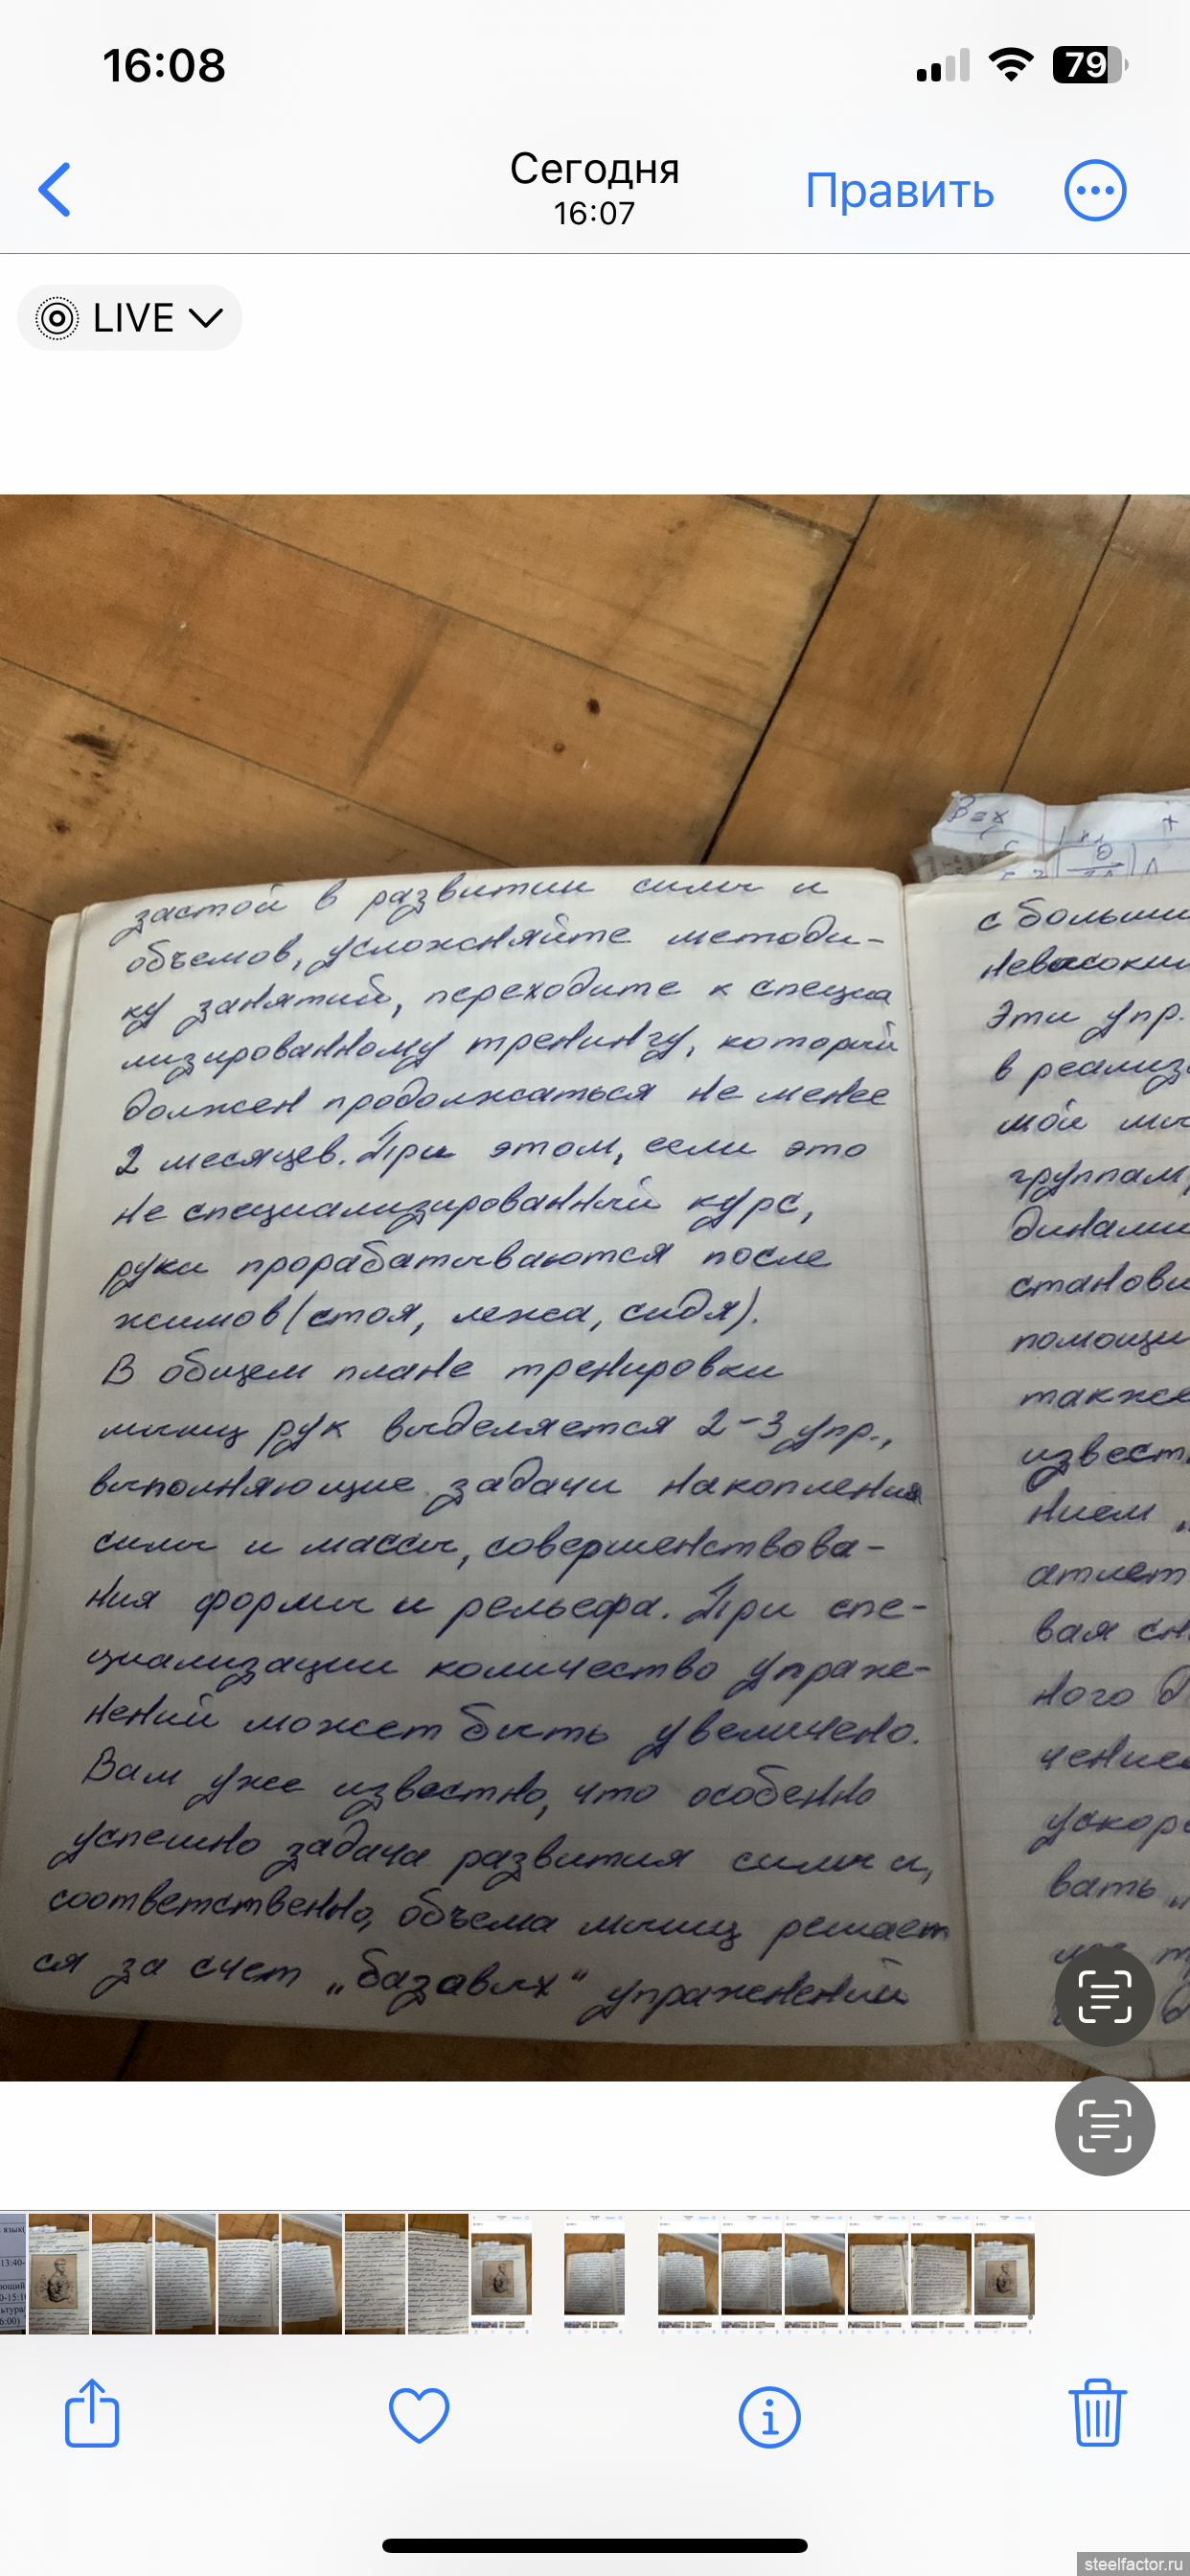 16:08
79
Сегодня
16:07
Править
LIVE
В=х
застой в развитии силы и
объемов, усложняйте методи-
ку занятий, переходите к специа
лизированному тренингу, который
должен продолжаться не менее
2 месяцев. При этом, если это
не специализированный курс,
руки прорабатываются после
жимов (стоя, лежа, сидя).
В общем плане тренировки
мышц рук выделяется 2-3 упр.,
выполняющие задачи накопления
силы и массы, совершенствова-
ния формы и рельефа. При спе-
циализации количество упраже-
нений может быть увеличено.
Вам уже известно, что особенно
успешно задача развития силы и,
соответственно, объема мышц решает
ся за счет „базавых“ упраженений
с больши
Эти упр.
в реализ
мой мы
группам,
динами
станови
помощи
также
извест
нием „
атлет
вая сн
ного д
ускор
вать „
steelfactor.ru